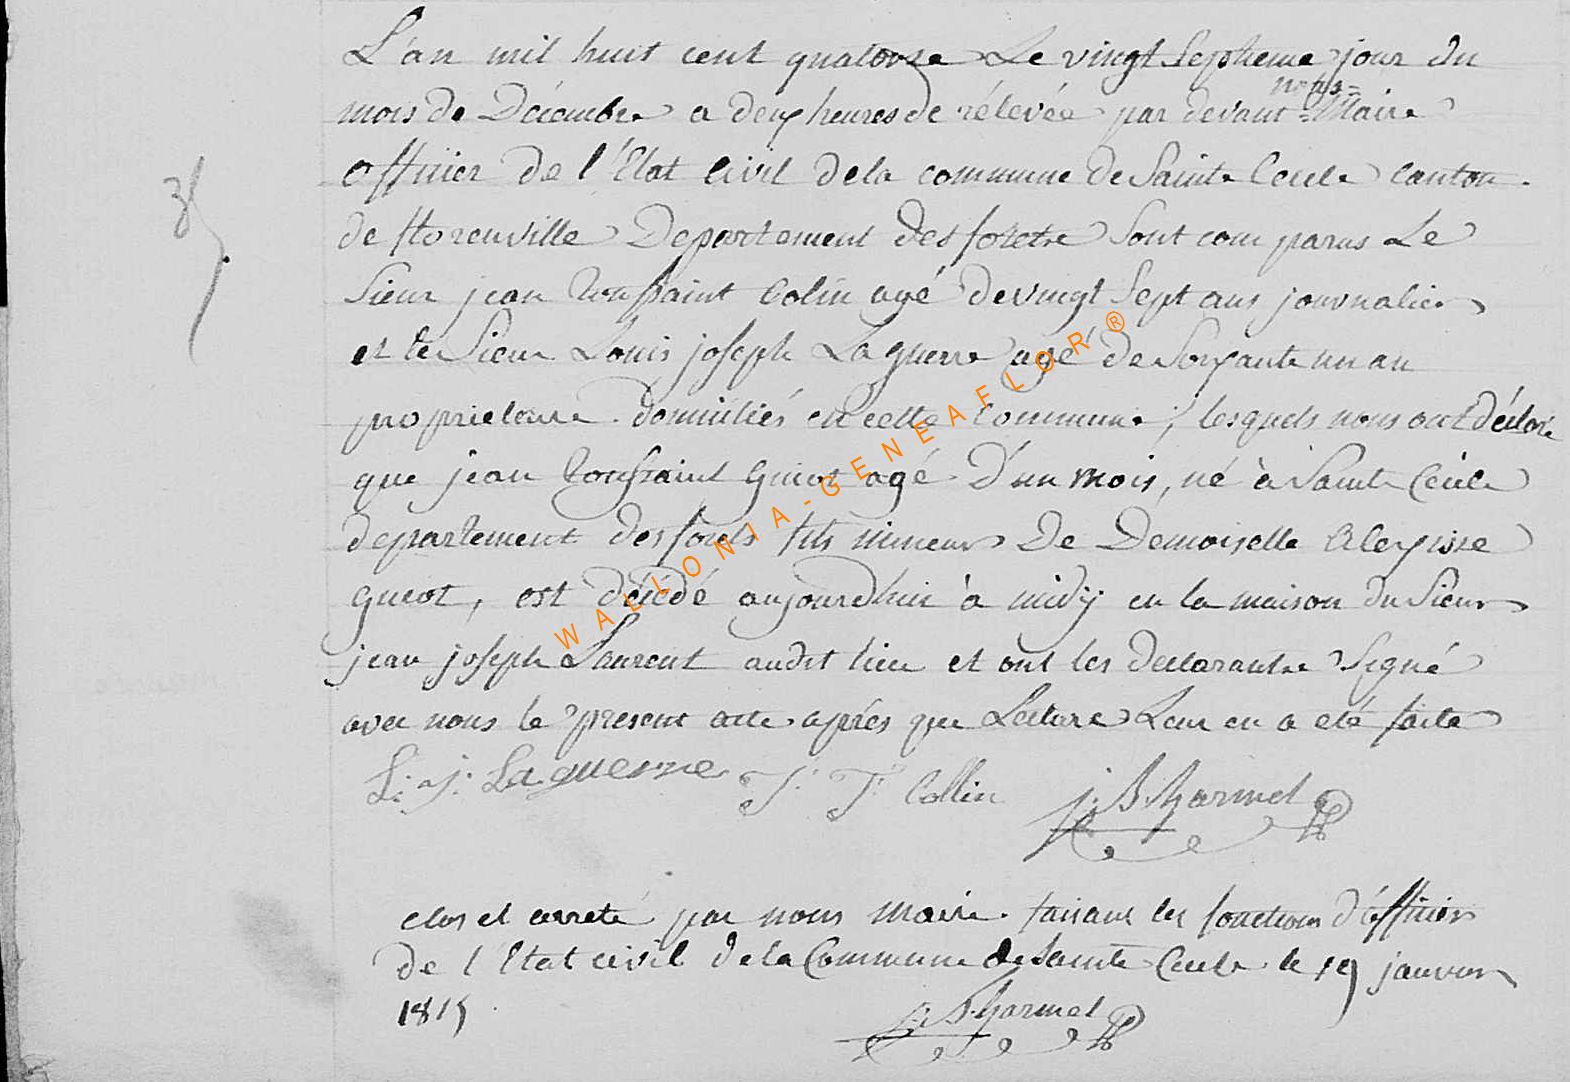 L'an mil huit cent quatorze Le vingt Septieme jour du
nous =
mois de Décembre a deux heures de rélevée par devant = Maire
officier de l'Etat Civil dela commune de Sainte Cecile Canton
de florenville Departement des forets Sont comparus Le
Sieur jean Toussaint Colin agé devingt Sept ans journalier
et le Sieur Louis joseph Laguerre agé de Soixante un an
proprietaire domiciliés en cette Commune, lesquels nous ont déclaré
que jean Toussaint Guiot agé D'un mois, né à Sainte Cecile
departement des forets fils mineur De Demoiselle Aleyisse
guiot, est décédé aujourdhui à midy en la maison du Sieur
jean joseph Laurent audit lieu et ont les declarants Signé
avec nous le present acte après que Lecture Leur en a eté faite
L: J: Laguerre J: T: Collin j: B. Harmel
clos et arreté par nous maire faisant les fonctions d'officier
De l'Etat civil dela Commune de Sainte Cecile le 19 janvier
1815
j: B. Harmel
WALLONIA-GENEAFLOR®